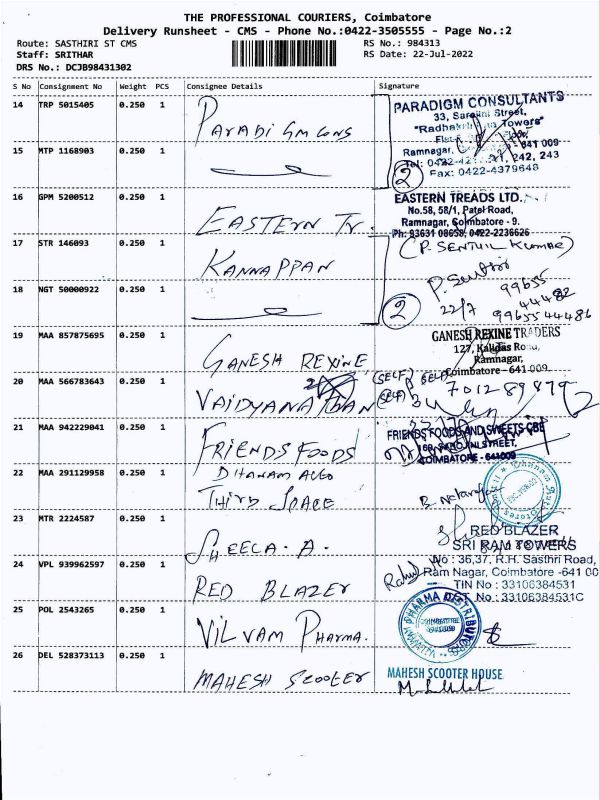 THE PROFESSIONAL COURIERS, Coimbatore
Delivery Runsheet - CMS - Phone No.:0422-3505555 - Page No.:2
Route: SASTHIRI ST CMS
RS No.: 984313
Staff: SRITHAR
RS Date: 22-Jul-2022
DRS No.: DCJB98431302
S No Consignment No Weight PCS Consignee Details Signature
14 TRP 5015405 0.250 1 PARADIGM CONS
PARADIGM CONSULTANTS
33, Street,
Towers"
Ramnagar, 641 009
242, 243
Fax: 0422-4379648
15 MTP 1168903 0.250 1
2
16 GPM 5200512 0.250 1 EASTERN Tr.
EASTERN TREADS LTD.
No.58, 58/1, Patel Road,
Ramnagar, Coimbatore - 9.
Ph: 93631 08658, 0422-2236626
17 STR 146093 0.250 1 KANNAPPAN
(P. SENTHIL KUMAR)
18 NGT 50000922 0.250 1
2
22/7
99655
44482
99655 44486
19 MAA 857875695 0.250 1 GANESH REXINE
GANESH REXINE TRADERS
127, Kalidas Road,
Ramnagar,
Coimbatore - 641 009.
20 MAA 566783643 0.250 1 VAIDYANATHAN
(SELF)
(SELF)
21 MAA 942229041 0.250 1 FRIENDS FOODS
FRIENDS FOODS AND SWEETS CBE
STREET,
COIMBATORE - 641009
22 MAA 291129958 0.250 1 DHANAM AUTO
THIRD SPACE
23 MTR 2224587 0.250 1 SHEELA. A.
24 VPL 939962597 0.250 1 RED BLAZER
RED BLAZER
SRI RAM TOWERS
No : 36,37, R.H. Sasthri Road,
Ram Nagar, Coimbatore -641 00
TIN No : 33106384531
No : 33106384531C
25 POL 2543265 0.250 1 VILVAM PHARMA.
26 DEL 528373113 0.250 1 MAHESH SCOOTER
MAHESH SCOOTER HOUSE